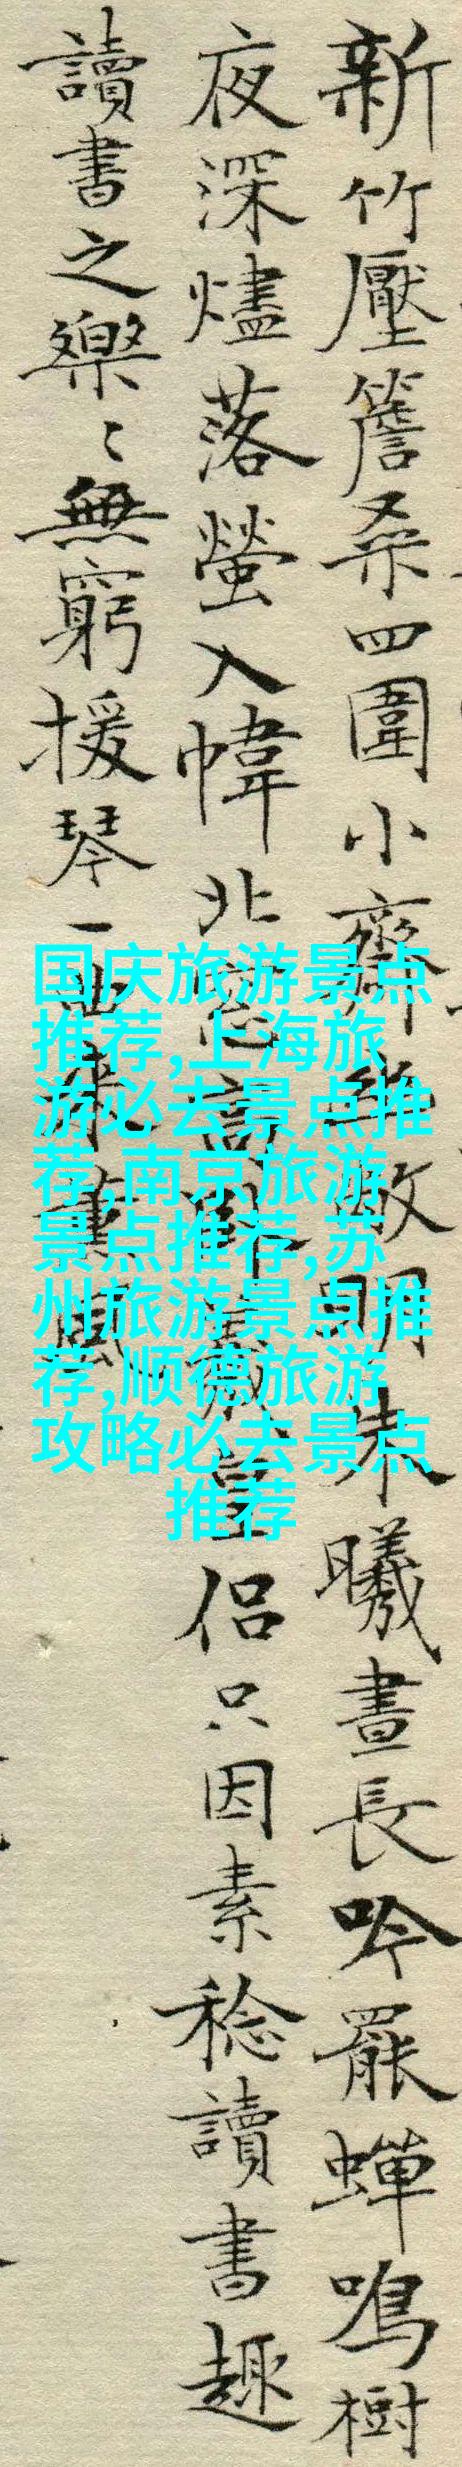 新竹壓簷桑四圍小齋幽敞明朱曦晝長吟罷蟬鳴樹
夜深燼落螢入幃北窓高臥羲皇侶只因素稔讀書趣
讀書之樂〻無窮援琴一曲來薰風
国庆旅游景点
推荐,上海旅
游必去景点推
荐,南京旅游
景点推荐,苏
州旅游景点推
荐,顺德旅游
攻略必去景点
推荐